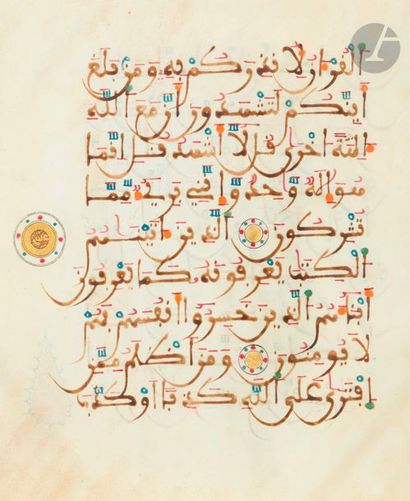 القران لانذركم به ومن بلغ
اينكم لتشهدون ان مع الله
الهة اخرى قل لا اشهد قل انما
هو اله واحد وانني بريء مما
تشركون الذين اتينهم
الكتب يعرفونه كما يعرفون
ابناءهم الذين خسروا انفسهم فهم
لا يومنون ومن اظلم ممن
افترى على الله كذبا او كذب